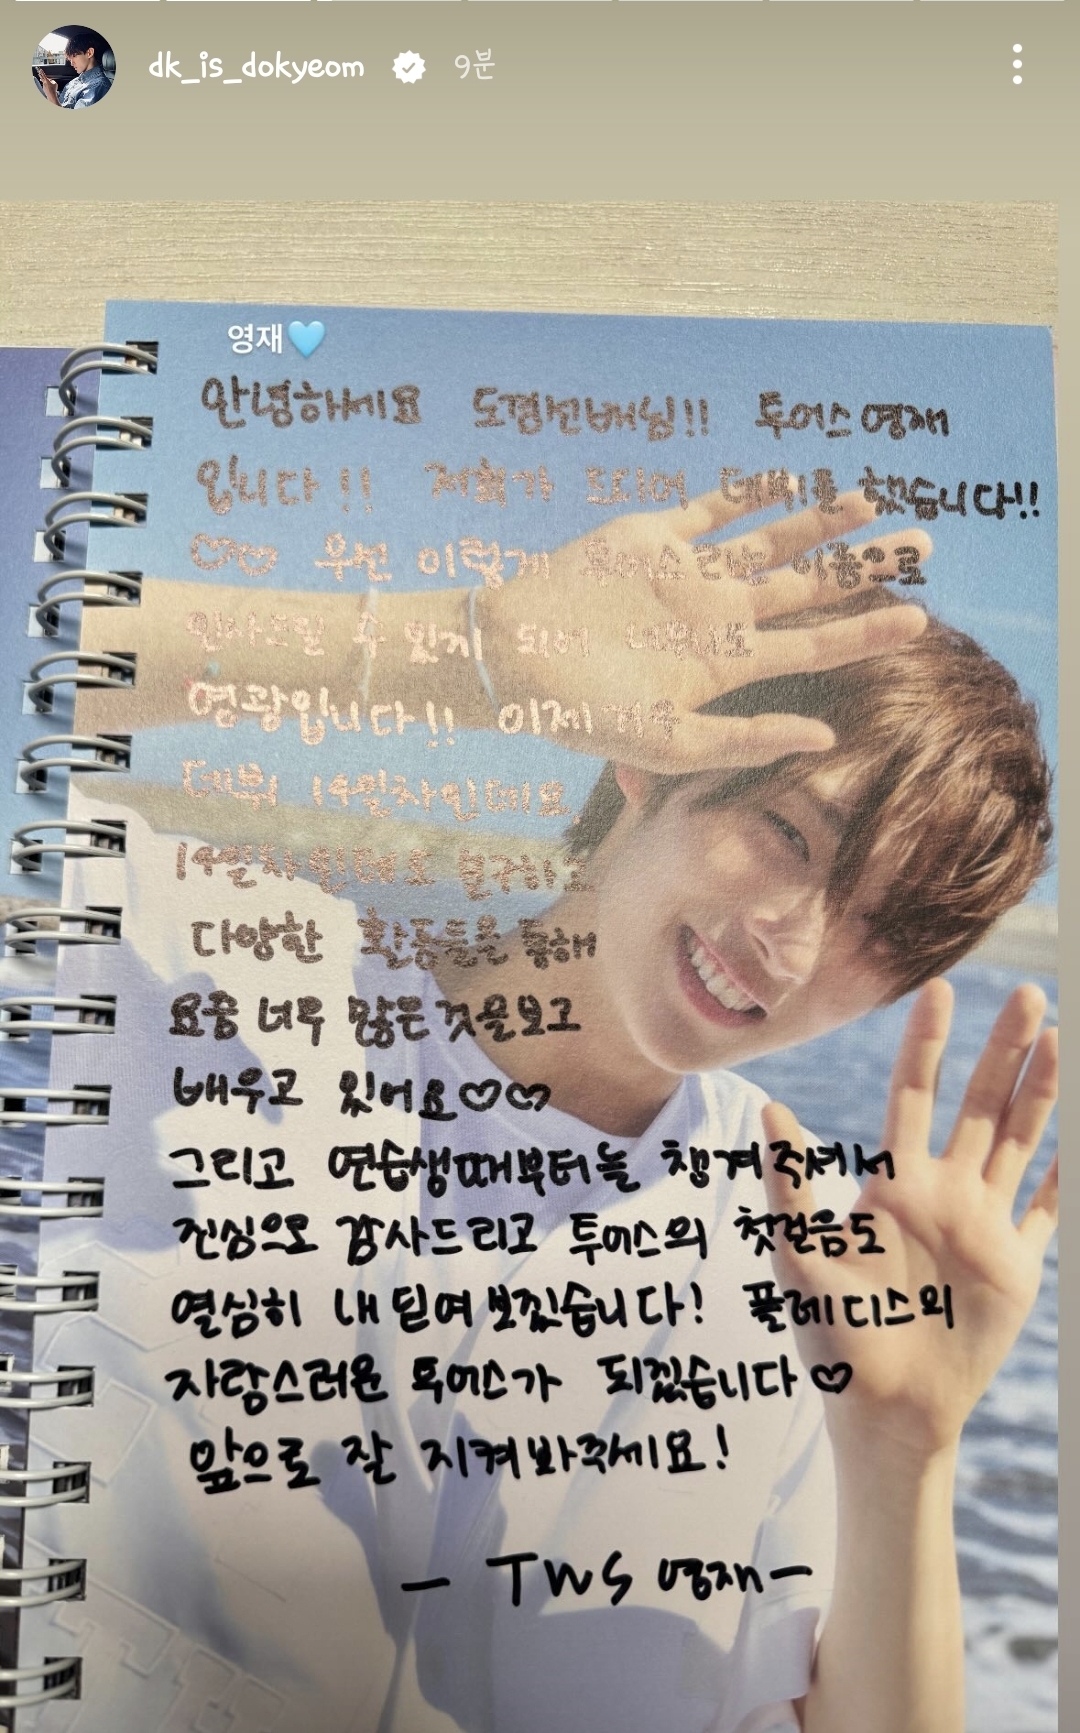 dk_is_dokyeom 9분
영재🩵
안녕하세요 도겸선배님!! 투어스 영재
입니다!! 저희가 드디어 데뷔를 했습니다!!
♡♡ 우선 이렇게 투어스라는 이름으로
인사드릴 수 있게 되어 너무나도
영광입니다!! 이제 겨우
데뷔 14일차인데요,
14일차인데도 불구하고
다양한 활동들을 통해
요즘 너무 많은 것을 보고
배우고 있어요♡♡
그리고 연습생때부터 늘 챙겨주셔서
진심으로 감사드리고 투어스의 첫걸음도
열심히 내딛어 보겠습니다! 플레디스의
자랑스러운 투어스가 되겠습니다♡
앞으로 잘 지켜봐주세요!
- TWS 영재-